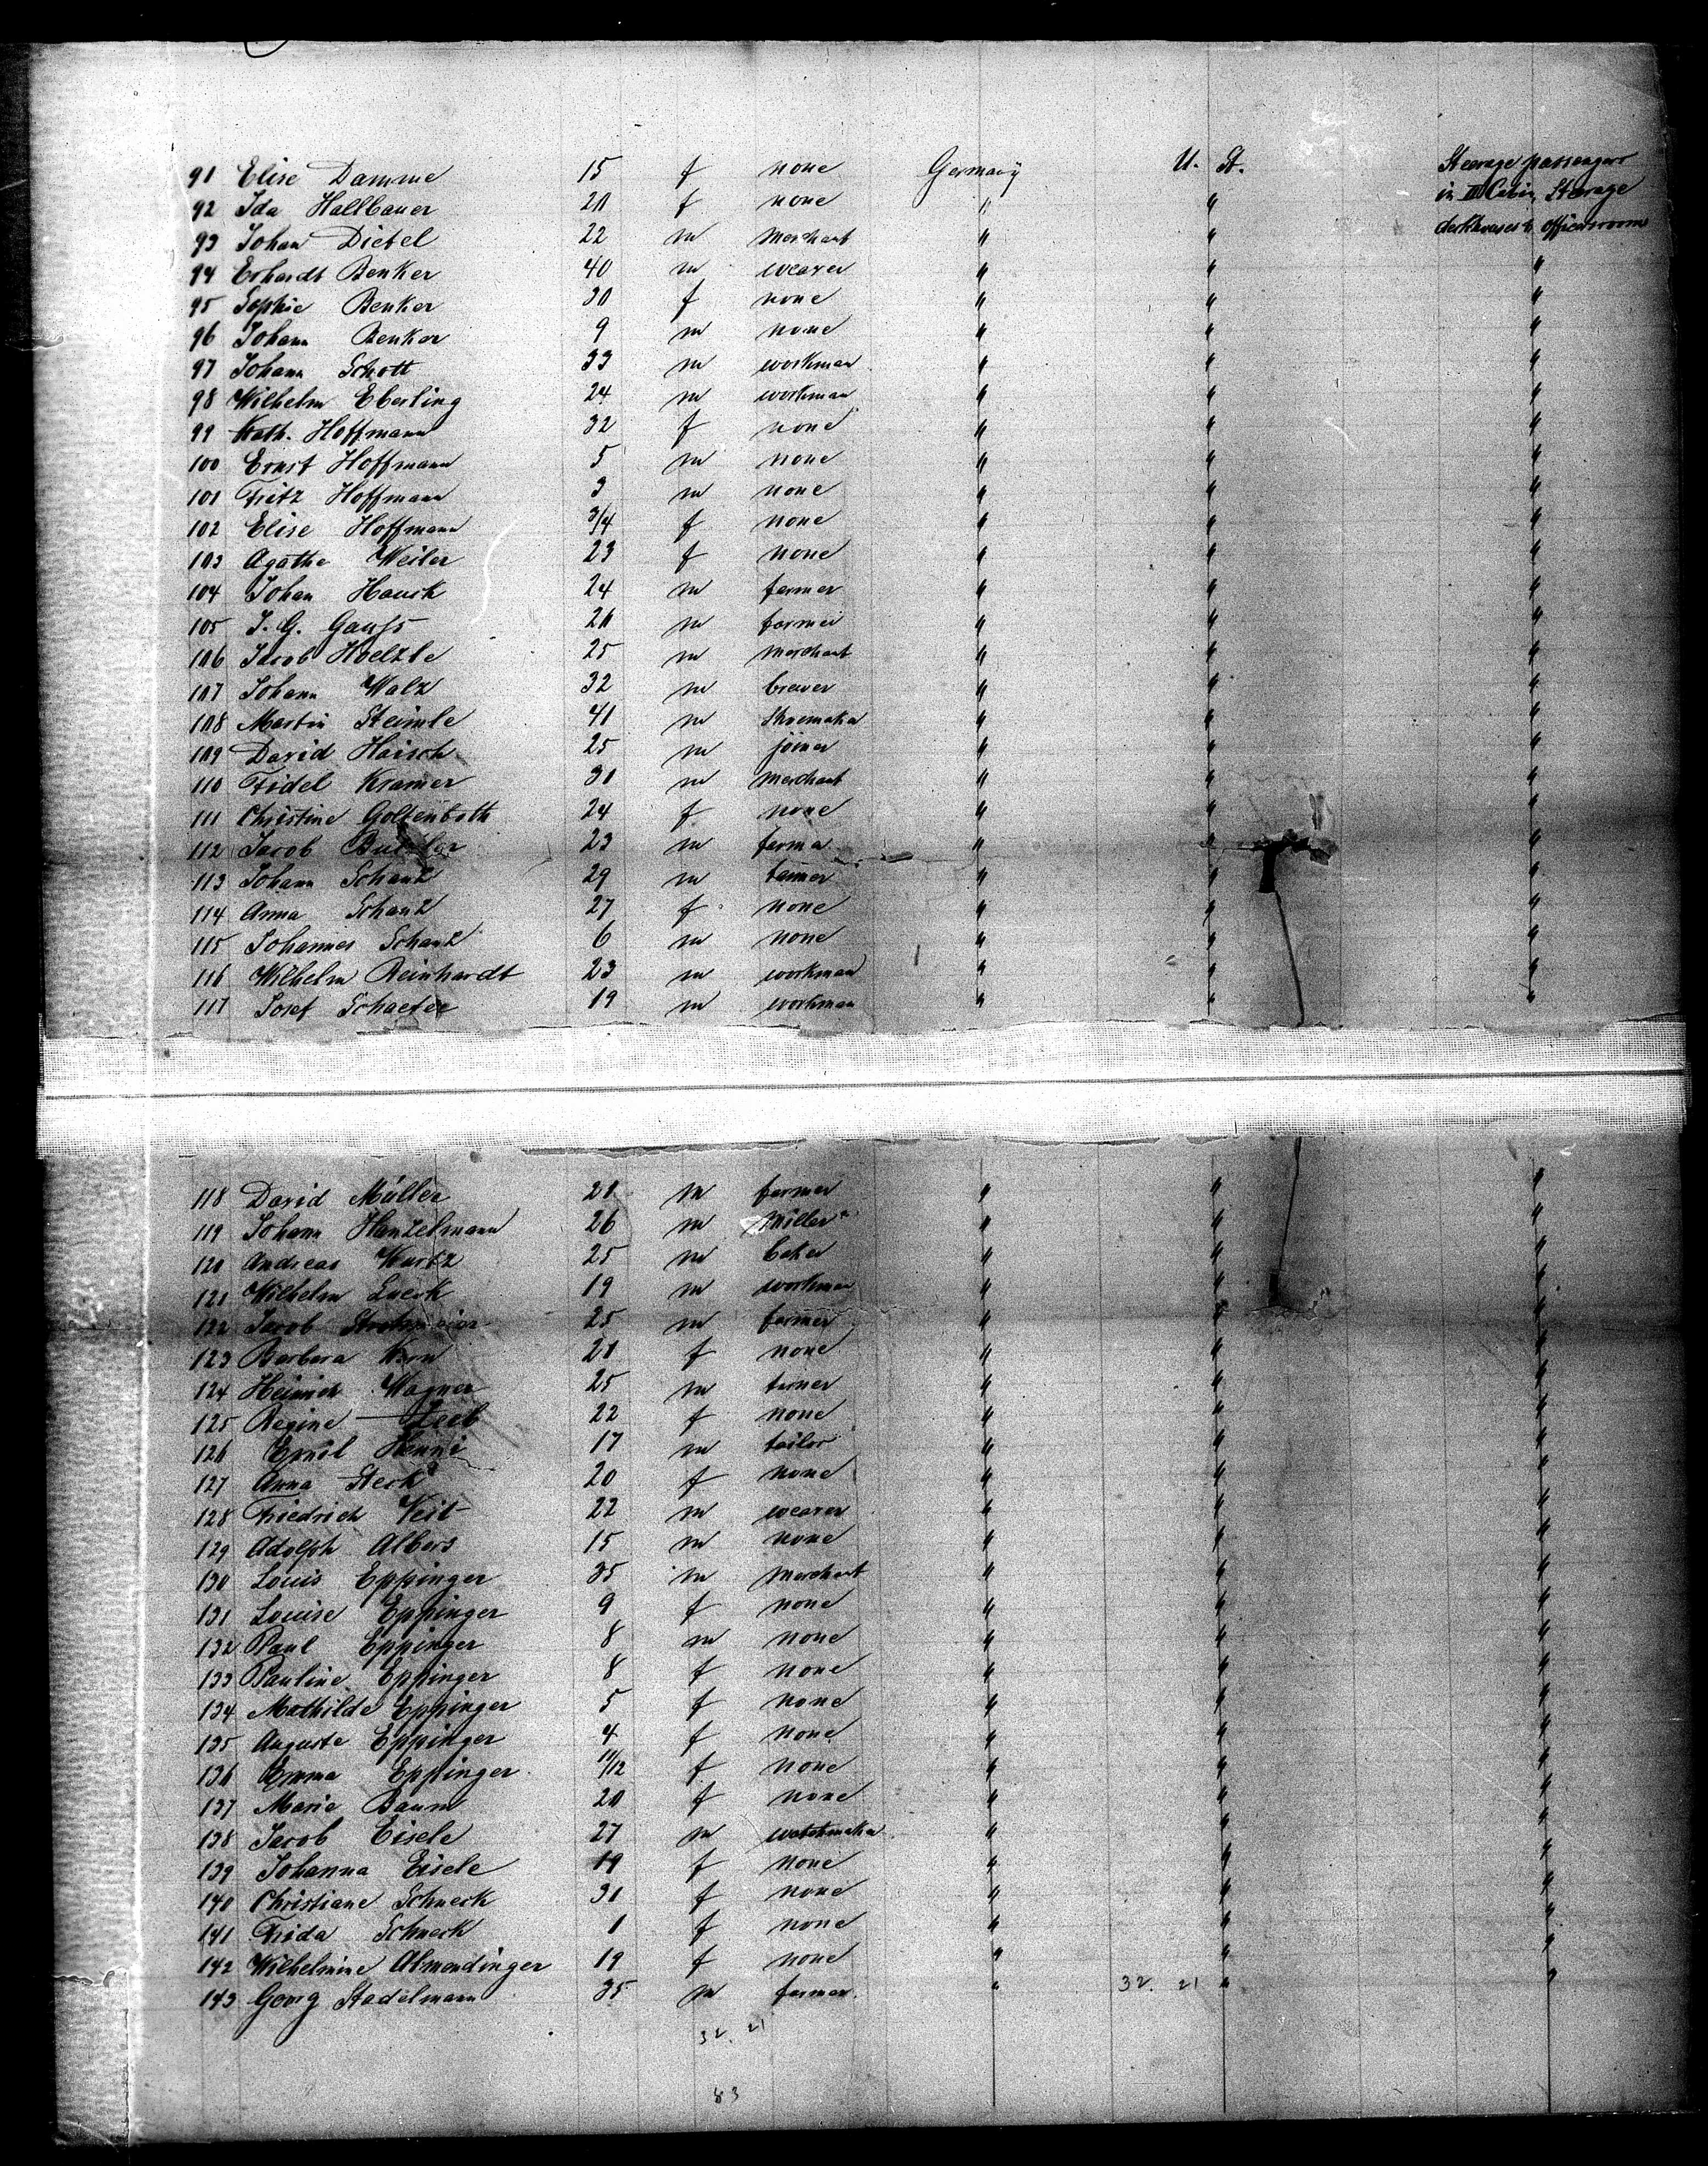 91 Elise Damme 15 f none Germany U. St. Steerage passengers
92 Ida Hallbauer 20 f none " " in II Cabin, Steerage
93 Johan Dietel 22 m merchant " " deckhouses & officersroom
94 Erhardt Benker 40 m weaver " " "
95 Sophie Benker 30 f none " " "
96 Johann Benker 9 m none " " "
97 Johann Schott 33 m workman " " "
98 Wilhelm Eberling 24 m workman " " "
99 Kath. Hoffmann 32 f none " " "
100 Ernst Hoffmann 5 m none " " "
101 Fritz Hoffmann 3 m none " " "
102 Elise Hoffmann 3/4 f none " " "
103 Agathe Weiler 23 f none " " "
104 Johan Hauck 24 m farmer " " "
105 J. G. Gauss 20 m farmer " " "
106 Jacob Hoelzle 25 m merchant " " "
107 Johann Walz 32 m brewer " " "
108 Martin Steimle 41 m shoemaker " " "
109 David Haisch 25 m joiner " " "
110 Fidel Kramer 30 m merchant " " "
111 Christine Goltenboth 24 f none " " "
112 Jacob 23 m farmer " " "
113 Johann Schanz 29 m tanner " " "
114 Anna Schanz 27 f none " " "
115 Johannes Schanz 6 m none " " "
116 Wilhelm Reinhardt 23 m workman " " "
117 Josef Schaefer 19 m workman " " "
118 David Müller 20 m farmer " " "
119 Johann Hanzelmann 26 m miller " " "
120 Andreas Kurtz 25 m baker " " "
121 Wilhelm Lueck 19 m workman " " "
122 Jacob Strohmeier 25 m farmer " " "
123 Barbara Kern 20 f none " " "
124 Heinrich Wagner 25 m turner " " "
125 Regine Zeeb 22 f none " " "
126 Emil Henni 17 m tailor " " "
127 Anna Steck 20 f none " " "
128 Friedrich Veit 22 m weaver " " "
129 Adolph Albers 15 m none " " "
130 Louis Eppinger 35 m merchant " " "
131 Louise Eppinger 9 f none " " "
132 Paul Eppinger 8 m none " " "
133 Pauline Eppinger 8 f none " " "
134 Mathilde Eppinger 5 f none " " "
135 Auguste Eppinger 4 f none " " "
136 Emma Eppinger 11/12 f none " " "
137 Marie Baum 20 f none " " "
138 Jacob Eisele 27 m watchmaker " " "
139 Johanna Eisele 19 f none " " "
140 Christiane Schneck 30 f none " " "
141 Frida Schneck 1 f none " " "
142 Wilhelmine Almendinger 19 f none " " "
143 Georg Stadelmann 35 m farmer " 32. 21 " "
32. 21
83